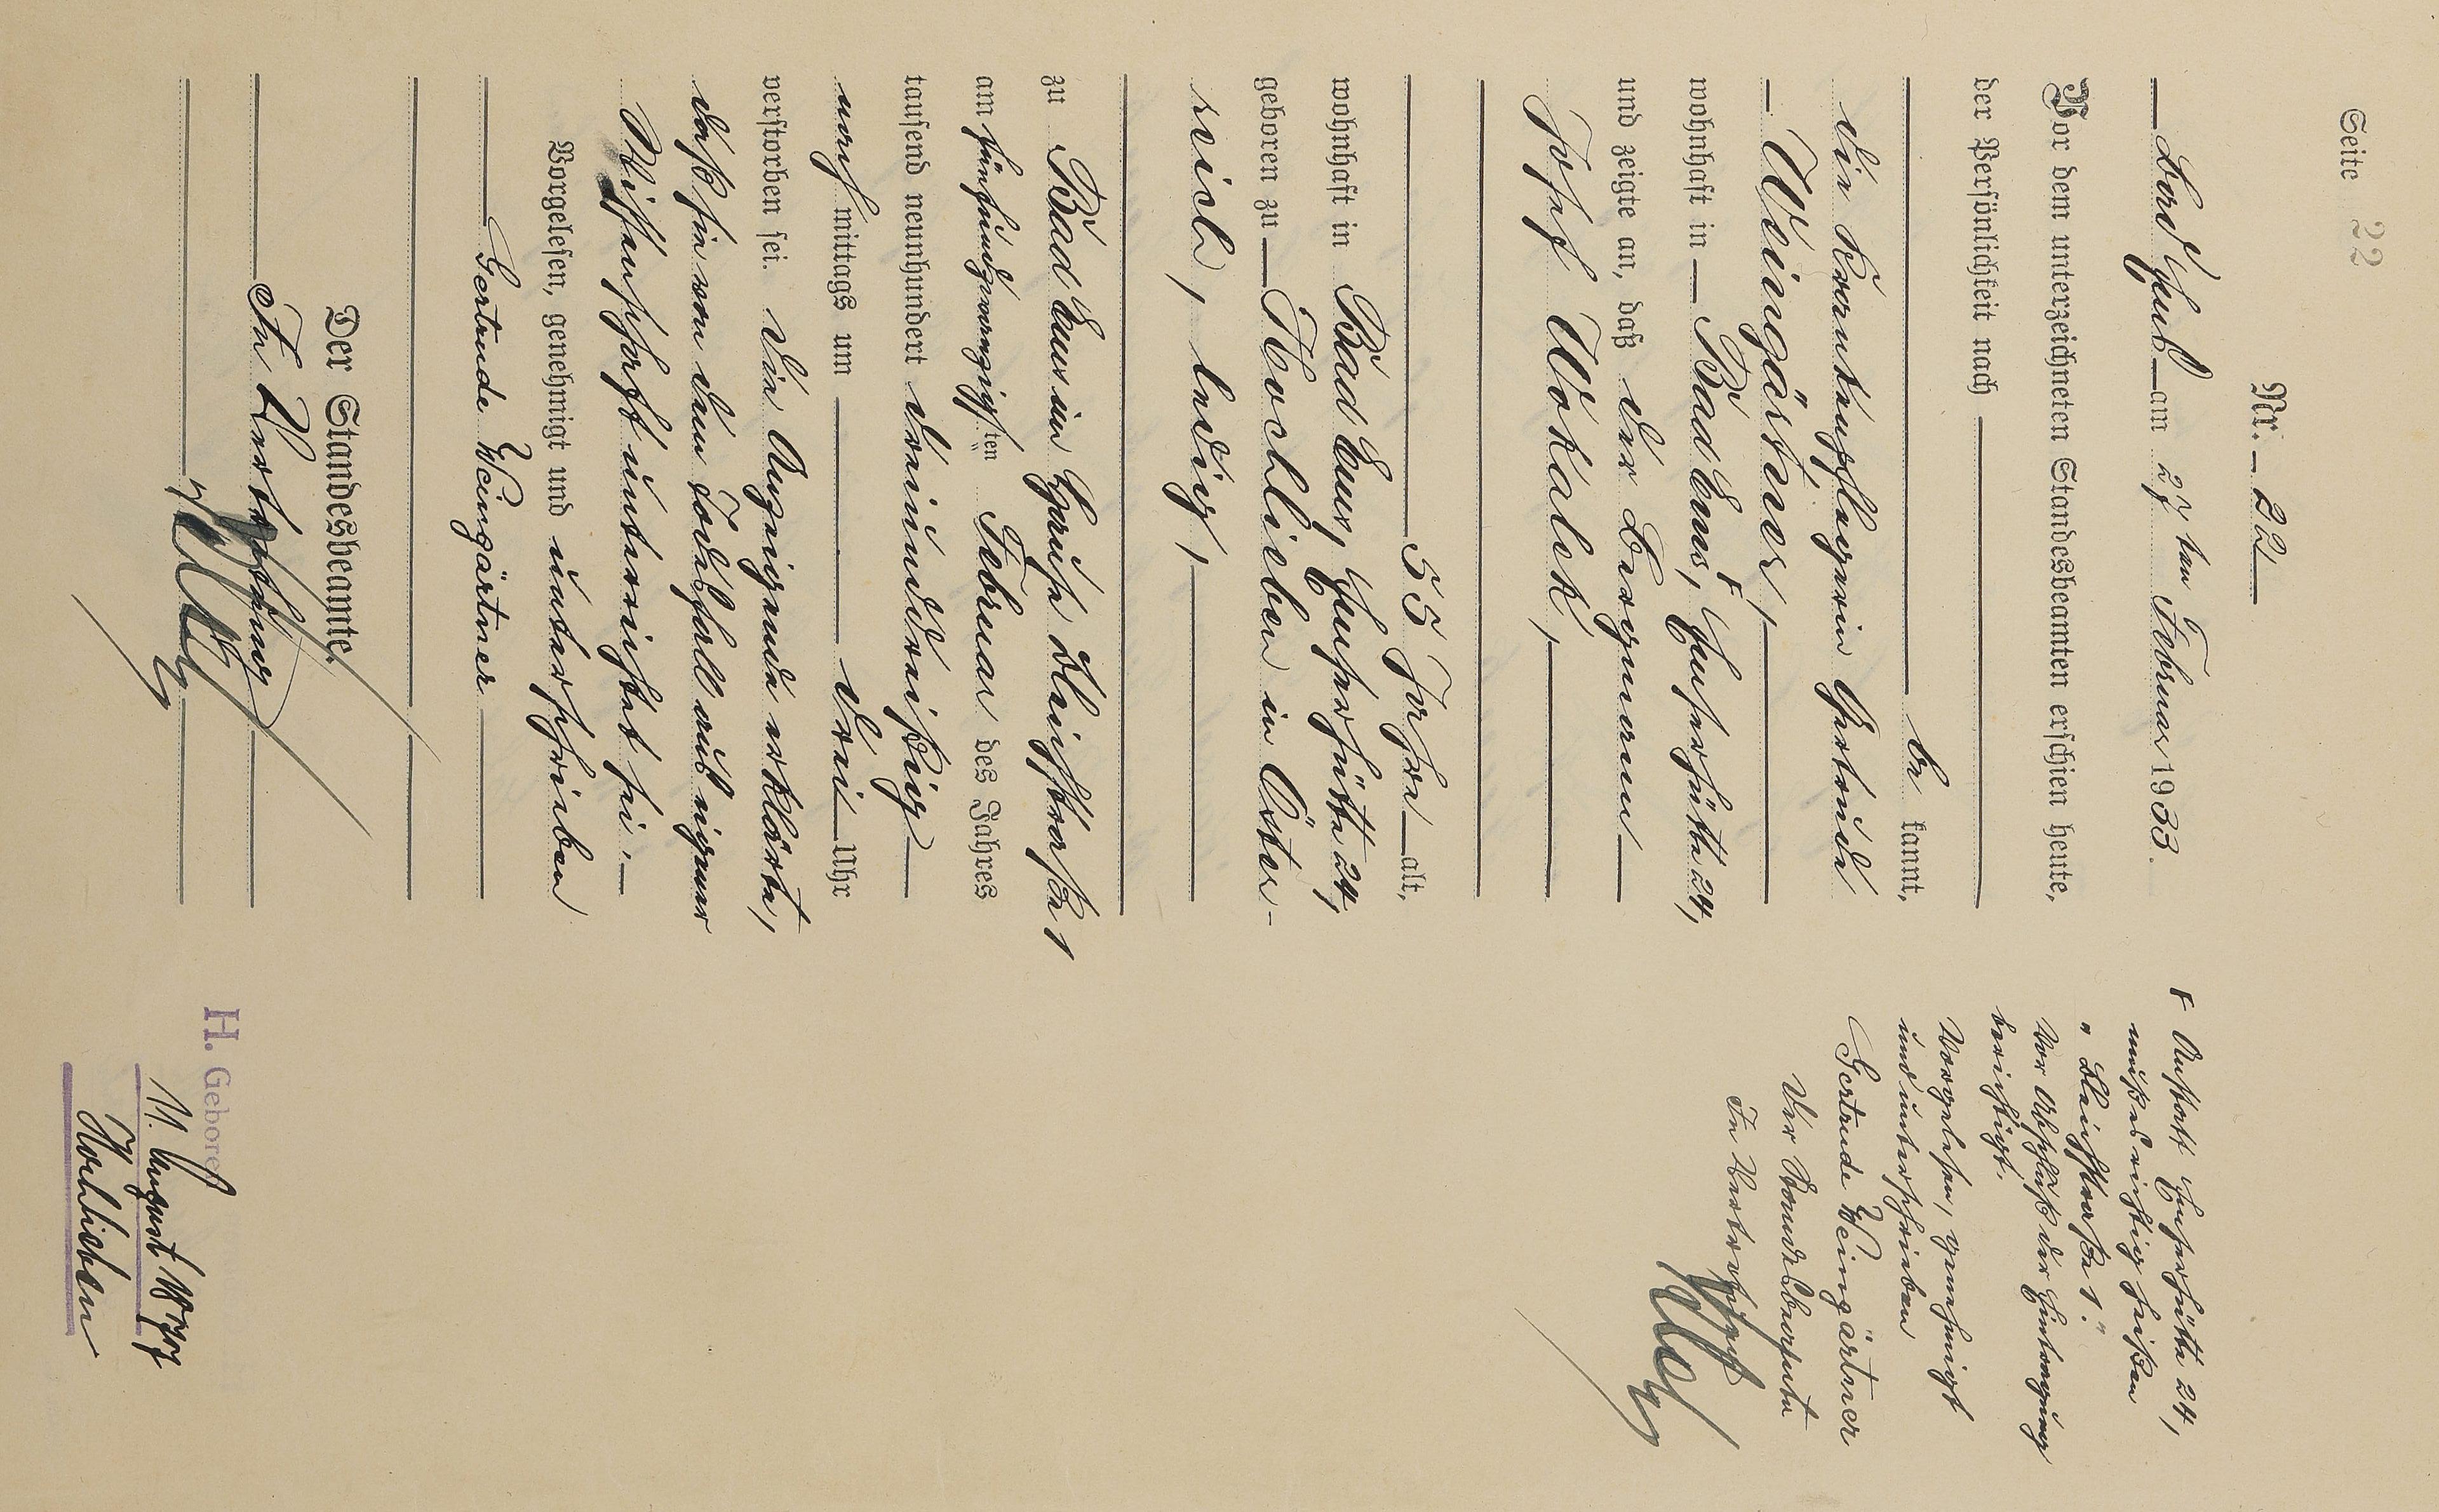 Seite 22
Nr. 22
Bad Ems am 27ten Februar 1933.
Vor dem unterzeichneten Standesbeamten erschien heute,
der Persönlichkeit nach
be kannt,
die Krankenpflegerin Gertrude
Weingärtner,
wohnhaft in Bad Ems, ⊢ Hufhütte 24,
und zeigte an, daß der Bergmann
Josef Wokalek,
55 Jahre alt,
wohnhaft in Bad Ems, Hufhütte 24,
geboren zu Hochlieben in Öster-
reich, ledig,
zu Bad Ems im Hause Bleichstraße 1
am fünfundzwanzigsten Februar des Jahres
tausend neunhundert dreiunddreißig
nach mittags um drei Uhr
verstorben sei. Die Anzeigende erklärte,
daß sie von dem Todesfall aus eigener
Wissenschaft unterrichtet sei.
Vorgelesen, genehmigt und unterschrieben
Gertrude Weingärtner
Der Standesbeamte.
In Vertretung
⊢ Anstatt Hufhütte 24,
muß es richtig heißen
"Bleichstraße 1."
Vor Abschluß der Eintragung
berichtigt.
Vorgelesen, genehmigt
und unterschrieben
Gertrude Weingärtner
Der Standesbeamte
In Vertretung
H. Geboren
11. August 1877
Hochlieben